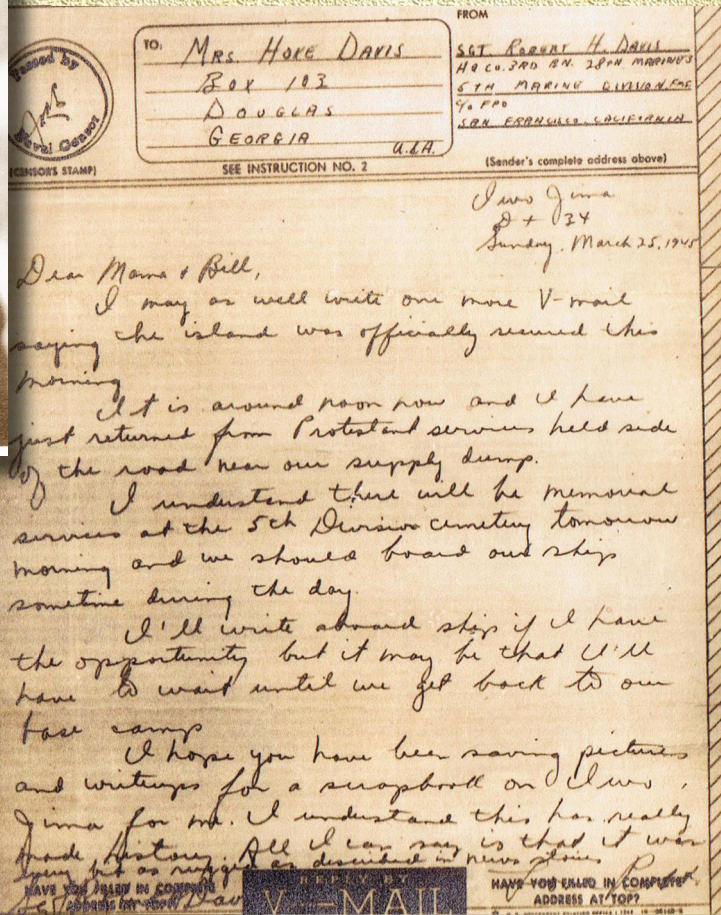 Passed by
Naval Censor
(CENSOR'S STAMP)
TO:
MRS. HOKE DAVIS
BOX 103
DOUGLAS
GEORGIA
U.S.A.
SEE INSTRUCTION NO. 2
FROM
SGT ROBERT H. DAVIS
HQ CO. 3RD BN. 28TH MARINES
5TH MARINE DIVISION, FMF
c/o FPO
SAN FRANCISCO. CALIFORNIA
(Sender's complete address above)
Iwo Jima
D + 34
Sunday, March 25, 1945
Dear Mama & Bill,
I may as well write one more V-mail
saying the island was officially secured this
morning
It is around noon now and I have
just returned from Protestant services held side
of the road near our supply dump.
I understand there will be memorial
services at the 5th Division cemetery tomorrow
morning and we should board our ship
sometime during the day.
I'll write aboard ship if I have
the opportunity but it may be that I'll
have to wait until we get back to our
base camp
I hope you have been saving pictures
and writeups for a scrapbook on Iwo
Jima for me. I understand this has really
made history. All I can say is that it was
every bit as rugged as described in news stories
HAVE YOU FILLED IN COMPLETE
ADDRESS AT TOP?
V-MAIL
HAVE YOU FILLED IN COMPLETE
ADDRESS AT TOP?